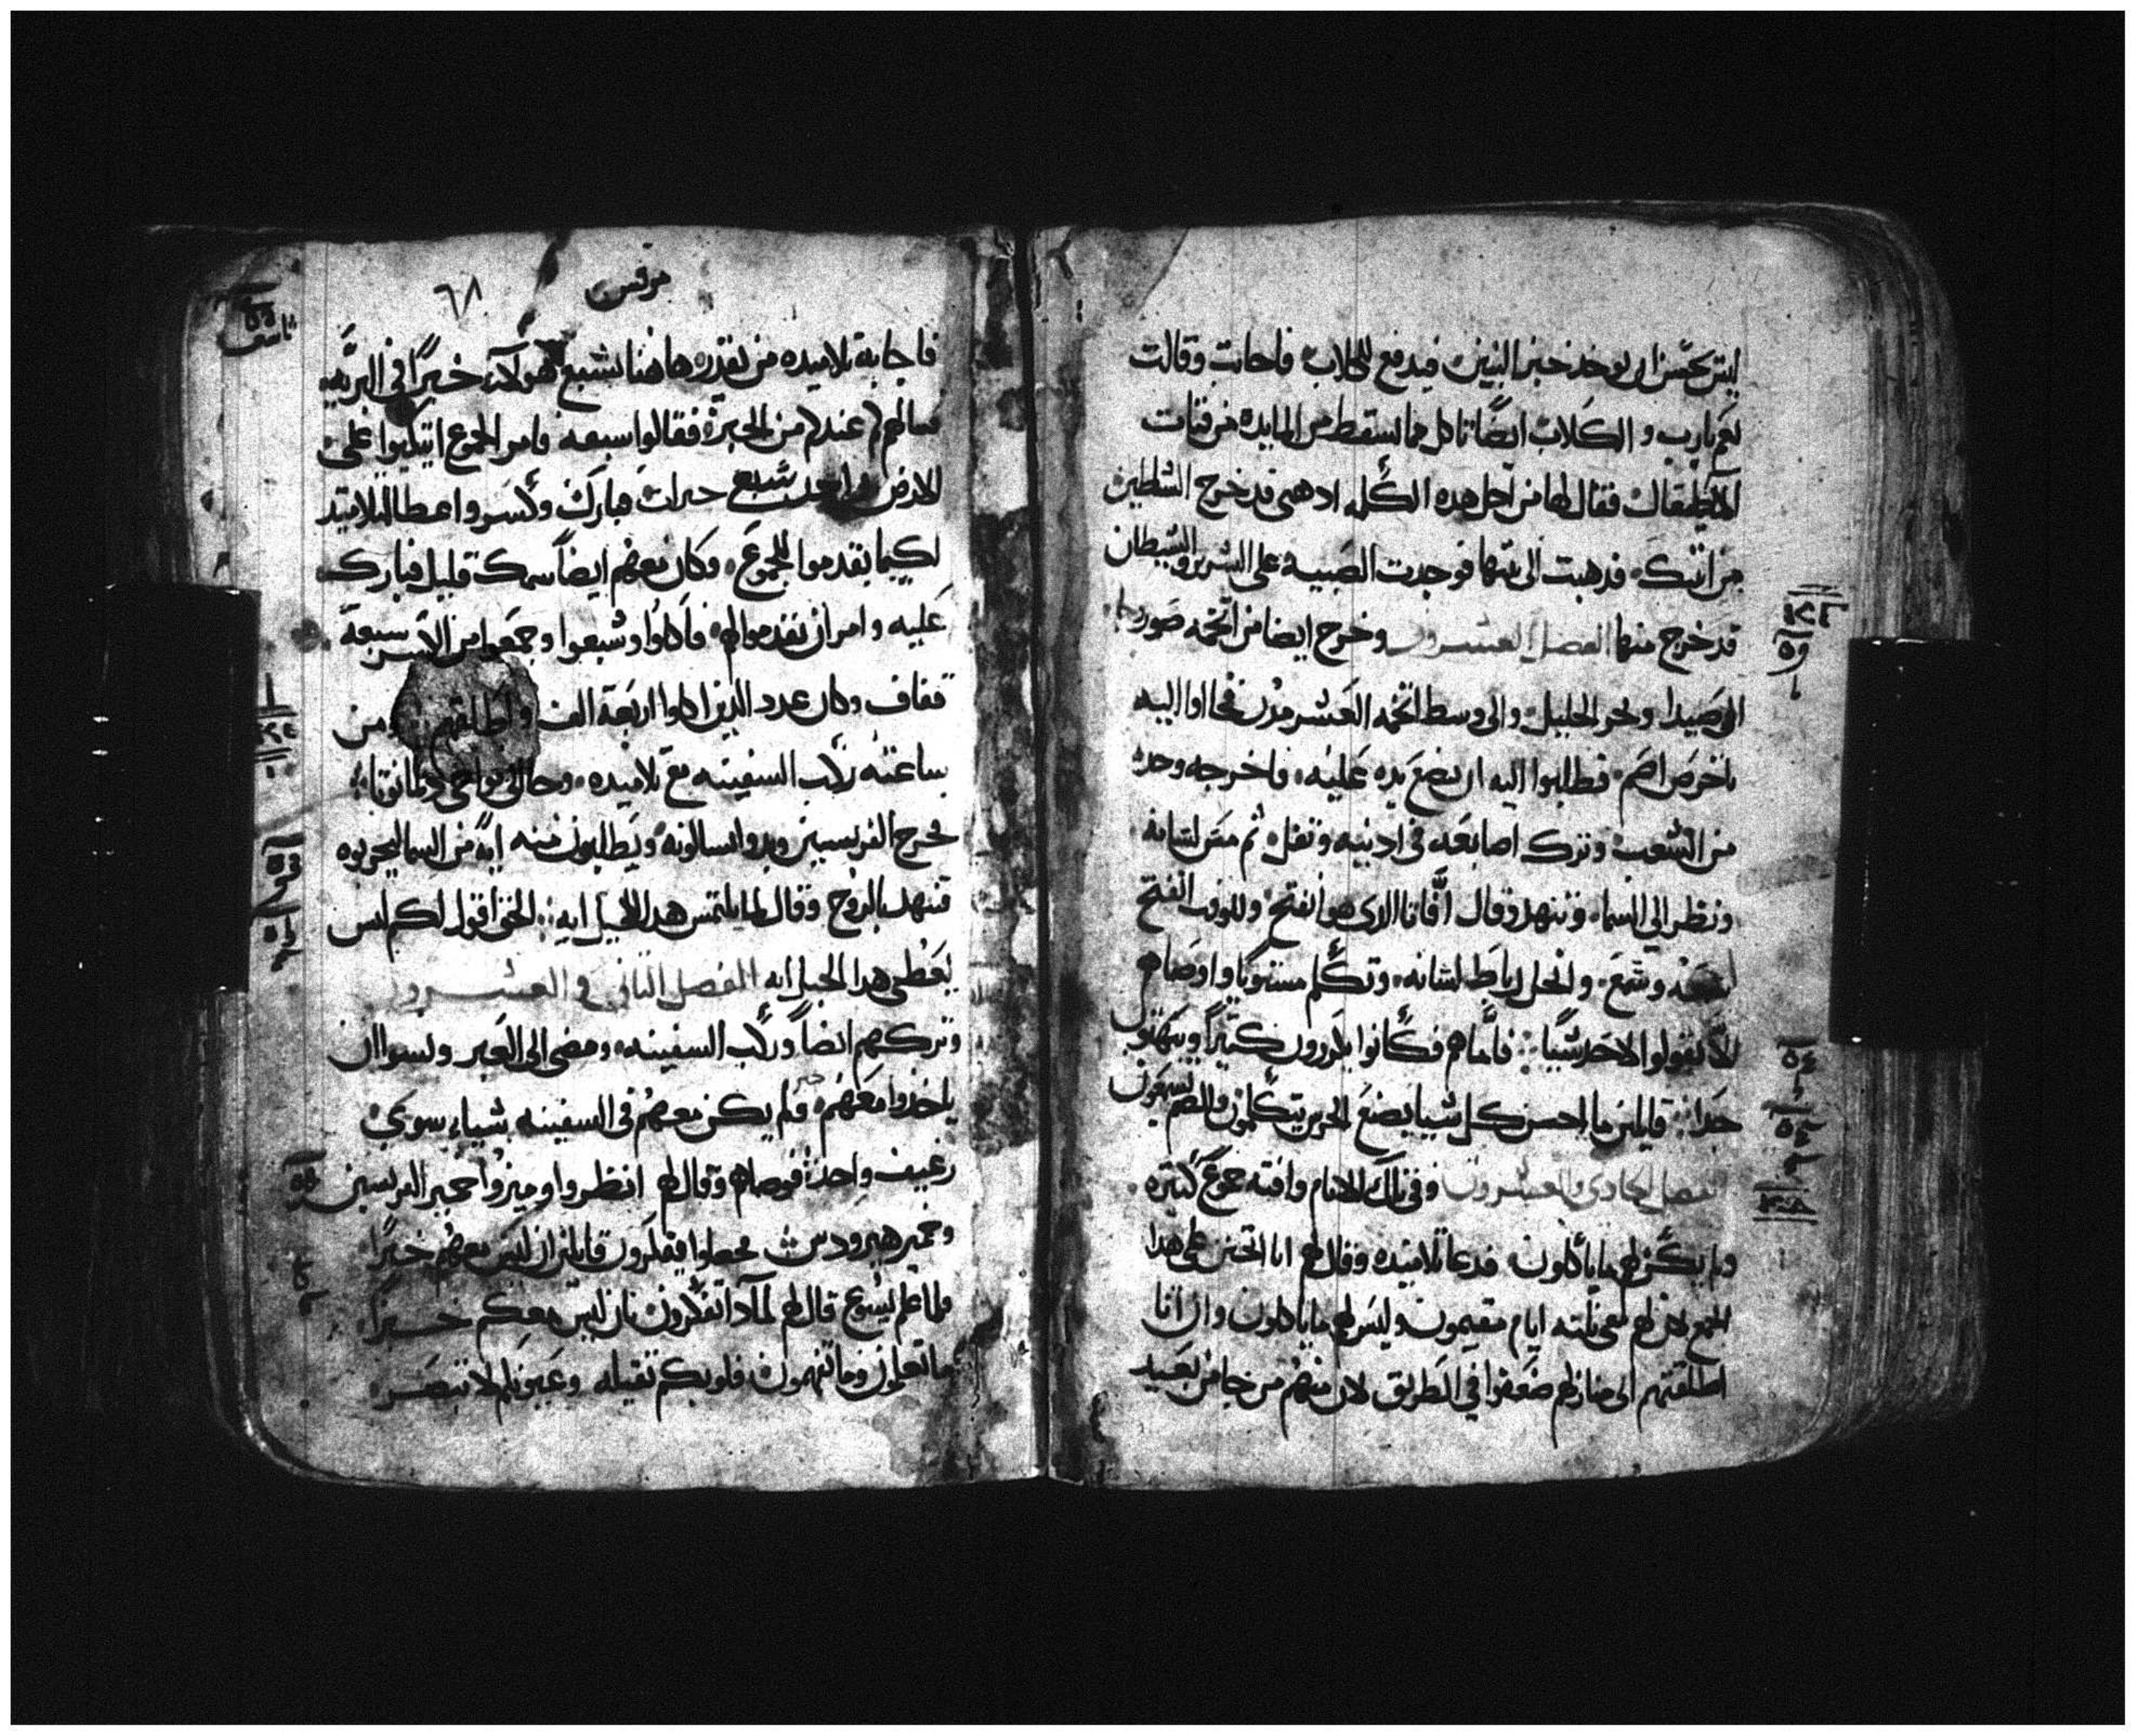 ليس يحسن ان يوخذ خبز البنين فيدفع للكلاب فاجابت وقالت
نعم يارب و الكلاب ايضًا تاكل مما يسقط من المايدة من فتات
فقال لها من اجل هده الكلمه ادهبي قد خرج الشيطان
من ابنتك فدهبت الى بيتها فوجدت الصبية على السرير والشيطان
قد خرج منها الفصل العشرون وخرج ايضا من تخمه صور
الى صيدا وبحر الجليل والى وسط تخمه العشر مدن فجااوا اليه
باخرص اصم فطلبوا اليه ان يضع يده عليه فاخرجه وحده
من الشعب وترك اصابعه في ادنيه وتفل ثم مس لسانه
ونظر الى السماء وتنهد وقال افاتا الدي هو انفتح وللوقت انفتح
وسمع وانحل رباط لسانه وتكلم مستويًا واوصاهم
الا يقولوا لاحد شيًا فاما هم فكانوا يكررون كتيرًا ويبهتون
جدا قايلين ما احسن كل شيا يصنع الخرس يتكلمون والصم يسمعون
فصل الحادي والعشرون وفي تلك الايام وافته جموع كتيره
ولم يكن لهم ما ياكلون فدعا تلاميده وقال لهم انا اتحنن على هدا
الجمع لان لهم معي تلته ايام مقيمون وليس لهم ما ياكلون وان انا
اطلقتهم الى منازلهم ضعفوا في الطريق لان منهم من جا من بعيد
مرقس
٦٨
فاجابه تلاميده من يقدر هاهنا يشبع هولاء خبزًا في البريه
سالهم عندكم من الخبز فقالوا سبعه وامر الجموع اتكيوا على
الارض واخد سبع خبزات بارك وكسر واعطا التلاميد
لكيما يقدموا للجموع وكان معهم ايضًا سمك قليل فبارك
عليه وامر ان يقدموا لهم فاكلوا وشبعوا وجمعوا من الكسر سبعة
قفاف وكان عدد الدين اكلوا اربعة الف واطلقهم ومن
ساعته ركب السفينه مع تلاميده وجا الى نواحي دلمانوتا
فخرج الفريسيين وبدوا يسالونه ويطلبون منه ايه من السما ليجربوه
فتنهد بالروح وقال لما يلتمس هدا الجيل ايه الحق اقول لكم ليس
يعطى هدا الجيل ايه الفصل التاني والعشرون
وتركهم ايضاً وركب السفينه ومضى الى العبر ونسوا ان
ياخدوا معهم خبز ولم يكن معهم في السفينه شياء سوى
رغيف واحد فوصاهم وقال لهم انظروا وميزوا خمير الفريسيين
وخمير هيرودس فجعلوا يفكرون قايلين ان ليس معهم خبزًا
فلما علم يسوع قال لهم لمادا تفكرون بان ليس معكم خبزًا
ما تعلمون وما تفهمون قلوبكم تقيله وعيونكم لا تبصر